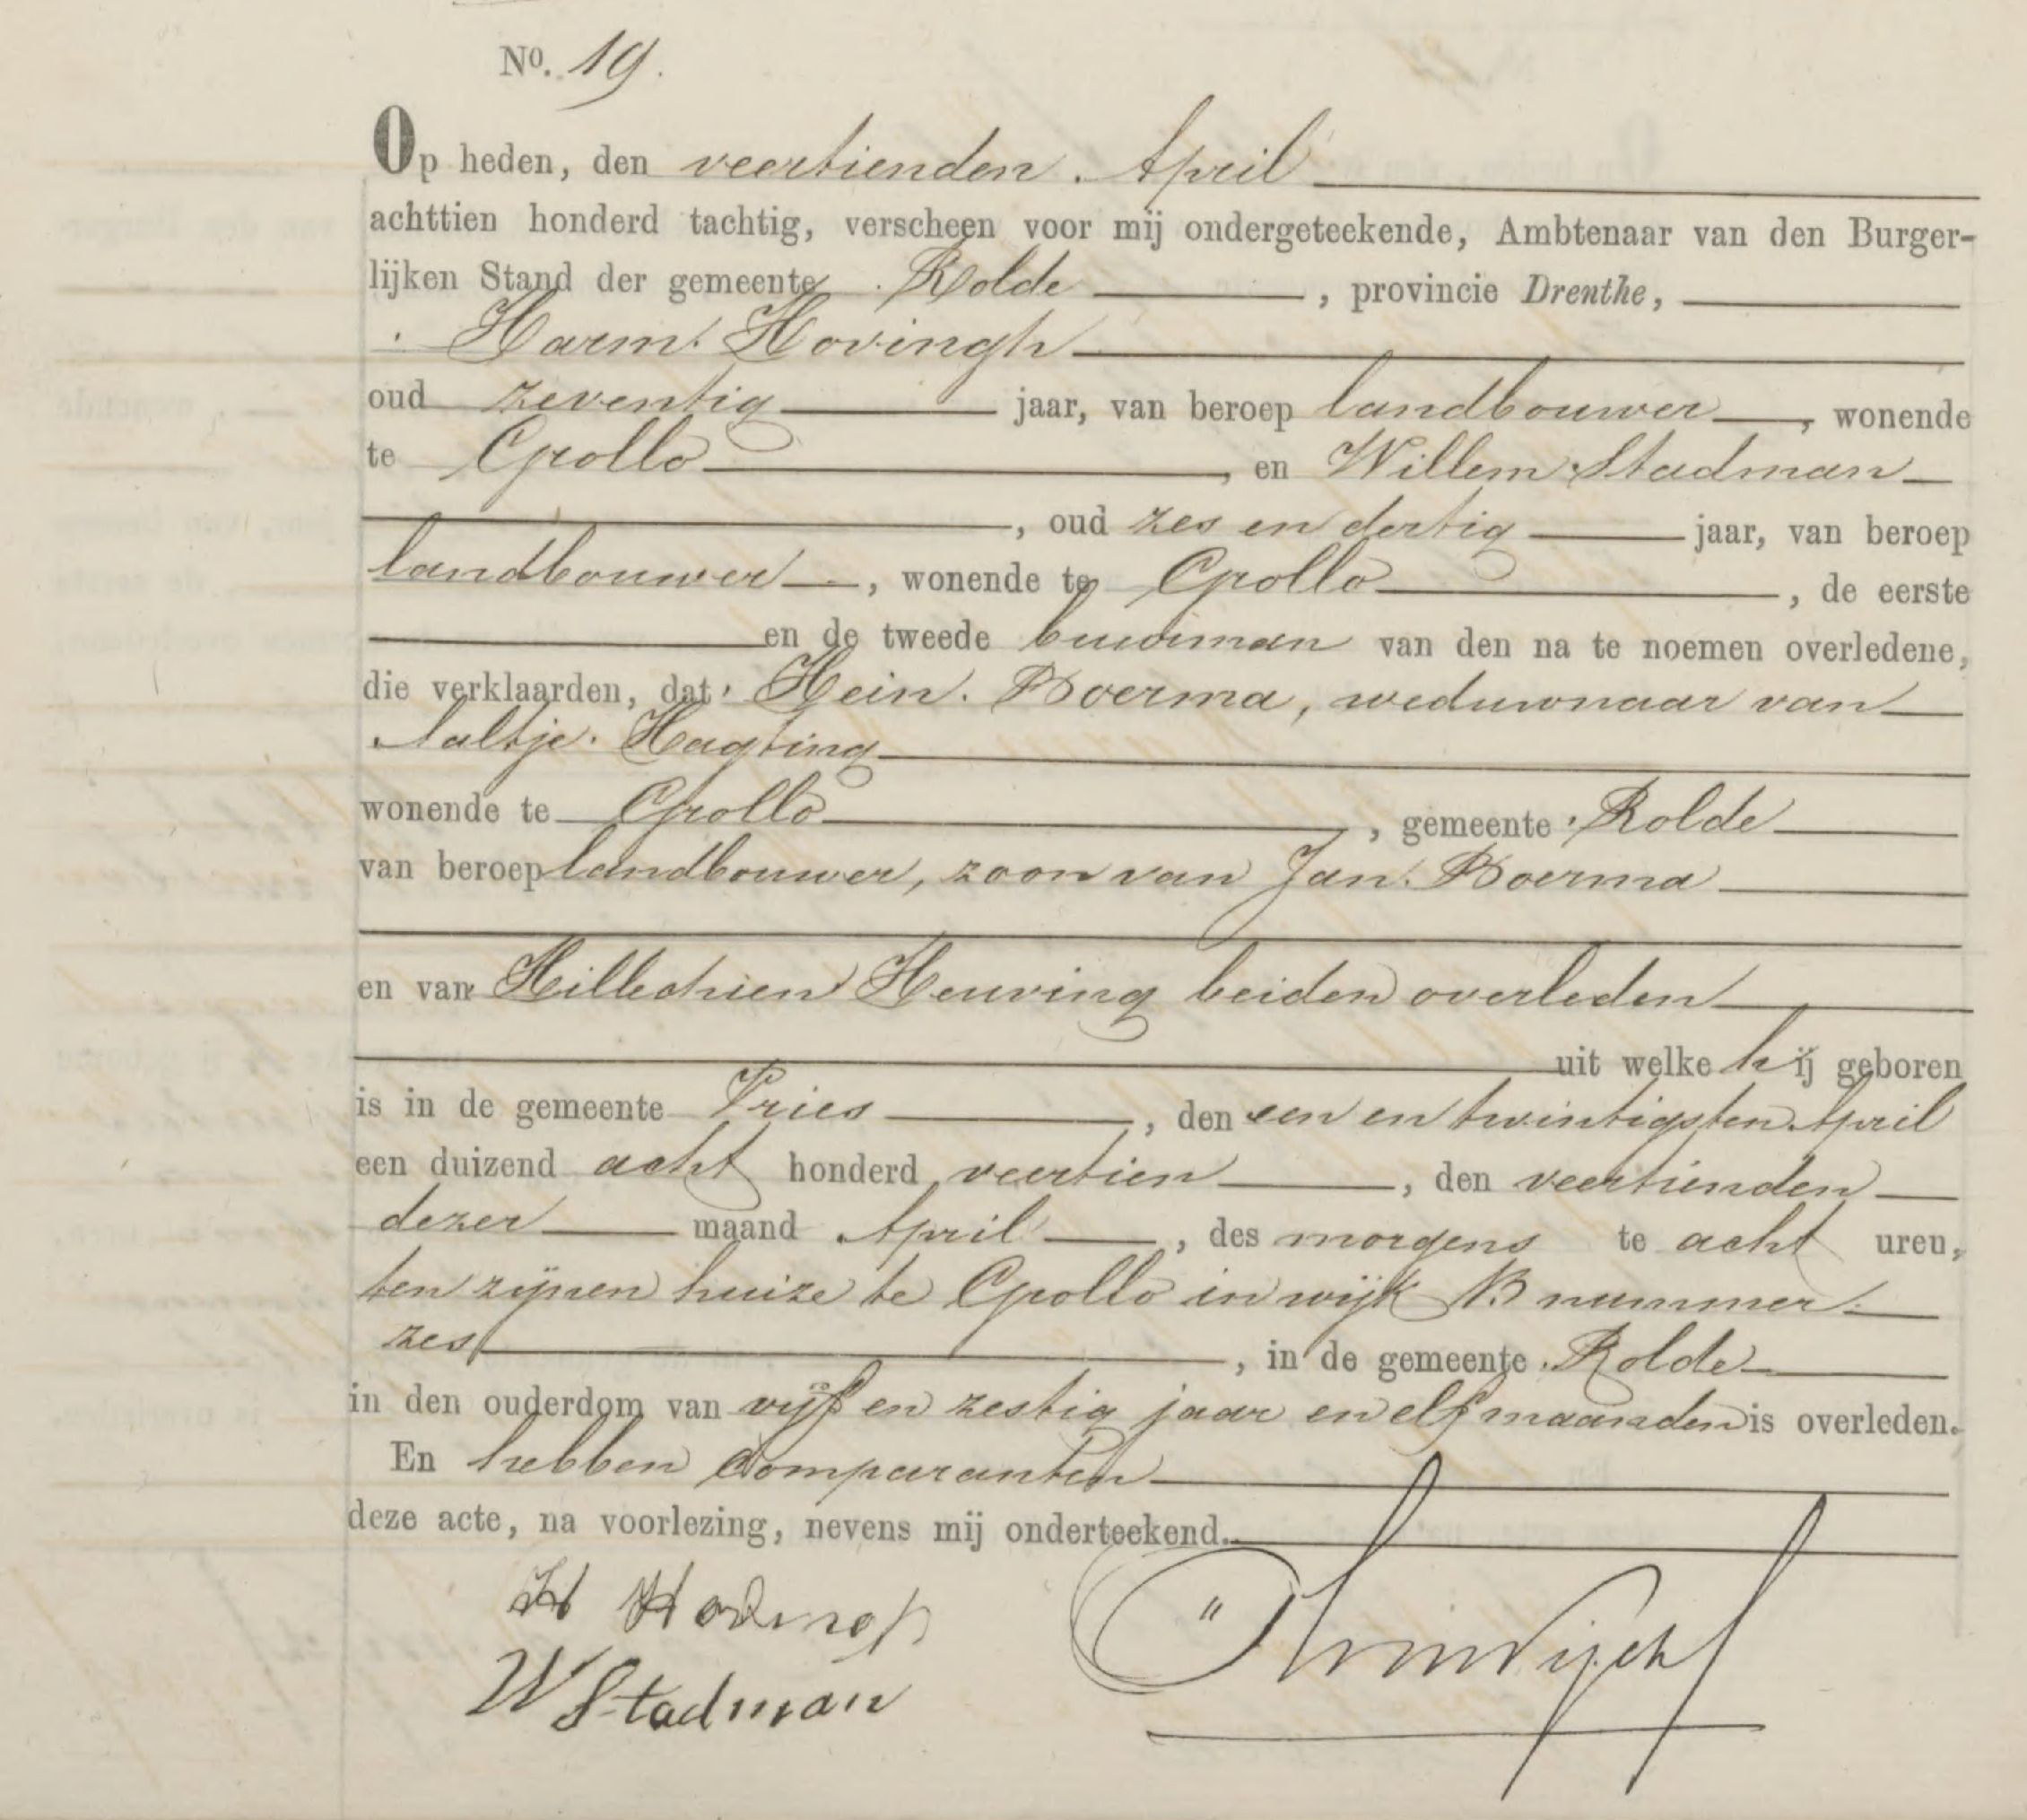 No. 19.
Op heden, den veertienden April
achttien honderd tachtig, verscheen voor mij ondergeteekende, Ambtenaar van den Burger-
lijken Stand der gemeente Rolde, provincie Drenthe,
Harm Hovingh
oud zeventig jaar, van beroep landbouwer, wonende
te Grollo, en Willem Stadman
, oud zes en dertig jaar, van beroep
landbouwer, wonende te Grollo, de eerste
en de tweede buurman van den na te noemen overledene,
die verklaarden, dat Hein Boerma, weduwnaar van
Aaltje Hagting
wonende te Grollo, gemeente Rolde
van beroep landbouwer, zoon van Jan Boerma
en van Hillechien Heuving beiden overleden
uit welke hij geboren
is in de gemeente Vries, den een en twintigsten April
een duizend acht honderd veertien, den veertienden
dezer maand April, des morgens te acht uren,
ten zijnen huize te Grollo in wijk B nummer
zes, in de gemeente Rolde
in den ouderdom van vijf en zestig jaar en elf maanden is overleden.
En hebben comparanten
deze acte, na voorlezing, nevens mij onderteekend.
H Hovingh
W Stadman